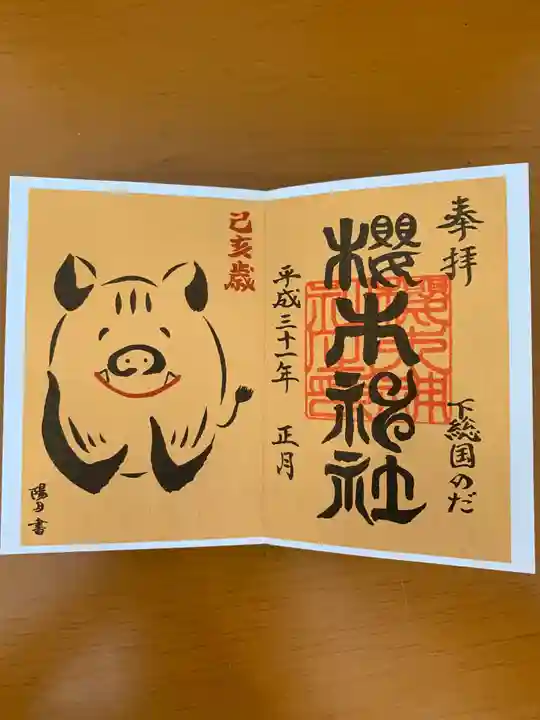 奉拝
下総国のだ
櫻木神社
平成三十一年 正月
己亥歳
陽月 書